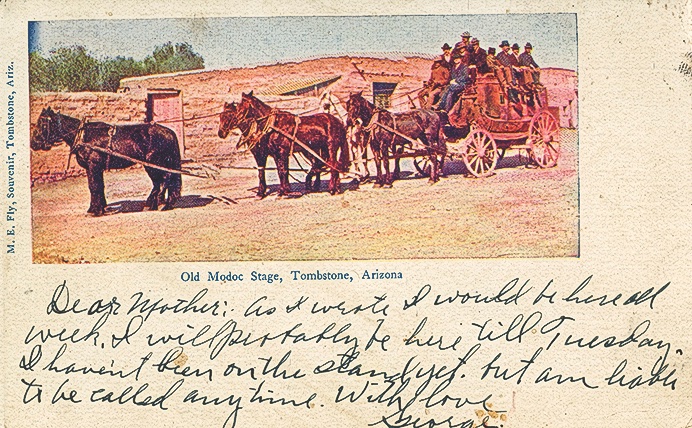 M. E. Fly, Souvenir, Tombstone, Ariz.
Old Modoc Stage, Tombstone, Arizona
Dear Mother: As I wrote I would be here all
week, I will probably be here till Tuesday.
I haven't been on the stand yet. but am liable
to be called anytime. With love
George.